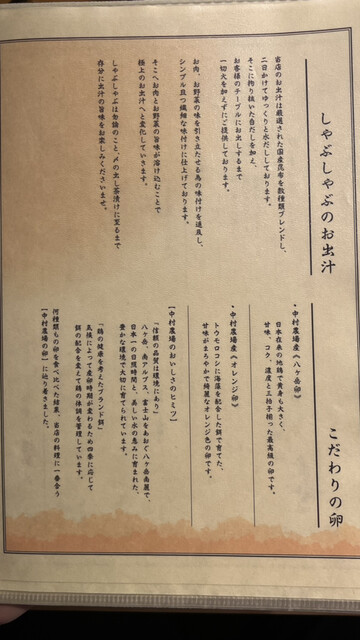 しゃぶしゃぶのお出汁
当店のお出汁は厳選された国産昆布を数種類ブレンドし、
二日かけてゆっくりと水だししております。
そこに拘り抜いた白だしを加え、
お客様のテーブルにお出しするまで
一切火を加えずにご提供しております。
お肉、お野菜の味を引き立たせる為の味付けを追及し、
シンプル且つ繊細な味付けに仕上げております。
そこへお肉とお野菜の旨味が溶け込むことで
極上のお出汁へと変化していきます。
しゃぶしゃぶは勿論のこと、〆の出し茶漬けに至るまで
存分に出汁の旨味をお楽しみくださいませ。
こだわりの卵
・中村農場産《八ヶ岳卵》
日本在来の地鶏で黄身も大きく、
甘味、コク、濃度と三拍子揃った最高級の卵です。
・中村農場産《オレンジ卵》
トウモロコシに海藻を配合した餌で育てた、
甘味がまろやかで綺麗なオレンジ色の卵です。
【中村農場のおいしさのヒミツ】
「信頼の品質は環境にあり」
八ヶ岳、南アルプス、富士山をあおぐ八ヶ岳南麓で、
日本一の日照時間と、美しい水の恵みに育まれた、
豊かな環境で大切に育てられています。
「鶏の健康を考えたブランド餌」
気候によって産卵時期が変わるため四季に応じて
餌の配合を変えて鶏の体調を管理しています。
何種類もの卵を食べ比べた結果、当店の料理に一番合う
【中村農場の卵】に辿り着きました。